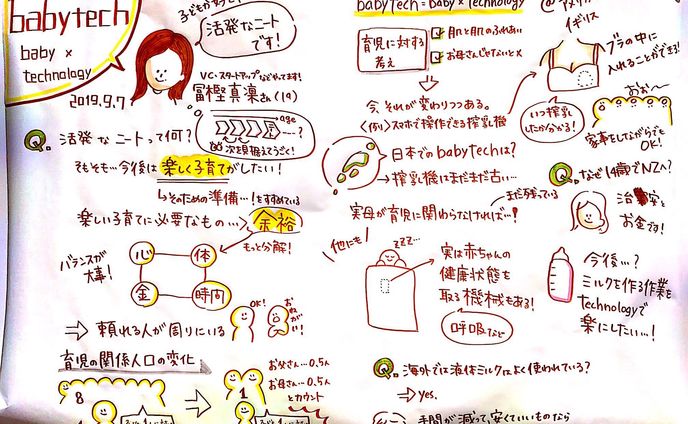 babytech
baby ×
technology
2019.9.7
子どもが好き!
活発なニート
です!
VC・スタートアップなどやってます!
冨樫真凜さん(19)
age
次を見据えてうごく!
Q. 活発なニートって何?
そもそも…今後は楽しく子育てがしたい!
そのための準備…!をすすめている
楽しい子育てに必要なもの…余裕
もっと分解!
バランスが
大事!
心 体
金 時間
OK!
おねがい!
⇒ 頼れる人が周りにいる
育児の関係人口の変化
8
1
お父さん…0.5人
お母さん…0.5人
とカウント
babytech = baby × technology
@アメリカ
イギリス
育児に対する
考え
肌と肌のふれあい
お母さんじゃないと×
ブラの中に
入れることができる!
今、それが変わりつつある。
〈例〉スマホで操作できる搾乳機
いつ搾乳
したか分かる!
おぉ〜
家事をしながらでも
OK!
日本でのbabytechは?
→ 搾乳機はまだまだ古い…
まだ残っている
実母が育児に関わらなければ…!
Q. なぜ14歳でNZへ?
治安と
お金です!
他にも
zzz…
実は赤ちゃんの
健康状態を
取る機械もある!
呼吸など
今後…?
ミルクを作る作業を
technologyで
楽にしたい…!
Q. 海外では液体ミルクはよく使われている?
⇒ yes.
手間が減って、安くていいものなら